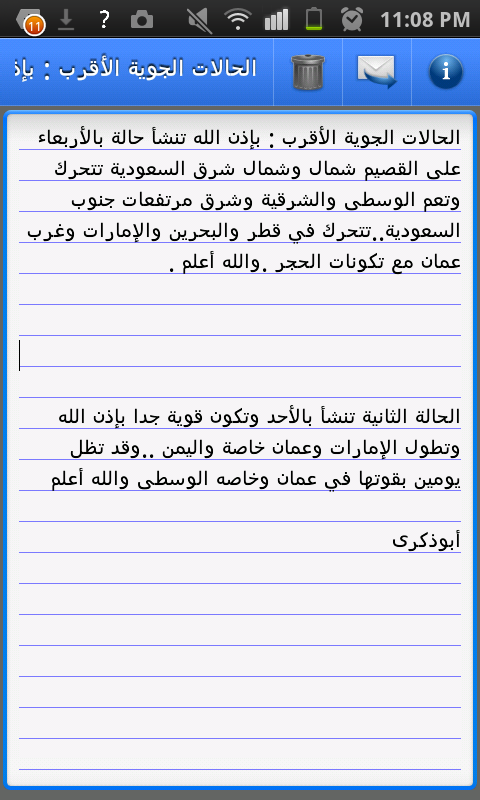 11
?
11:08 PM
الحالات الجوية الأقرب : بإذ
الحالات الجوية الأقرب : بإذن الله تنشأ حالة بالأربعاء
على القصيم شمال وشمال شرق السعودية تتحرك
وتعم الوسطى والشرقية وشرق مرتفعات جنوب
السعودية..تتحرك في قطر والبحرين والإمارات وغرب
عمان مع تكونات الحجر .والله أعلم .
الحالة الثانية تنشأ بالأحد وتكون قوية جدا بإذن الله
وتطول الإمارات وعمان خاصة واليمن ..وقد تظل
يومين بقوتها في عمان وخاصه الوسطى والله أعلم
أبوذكرى